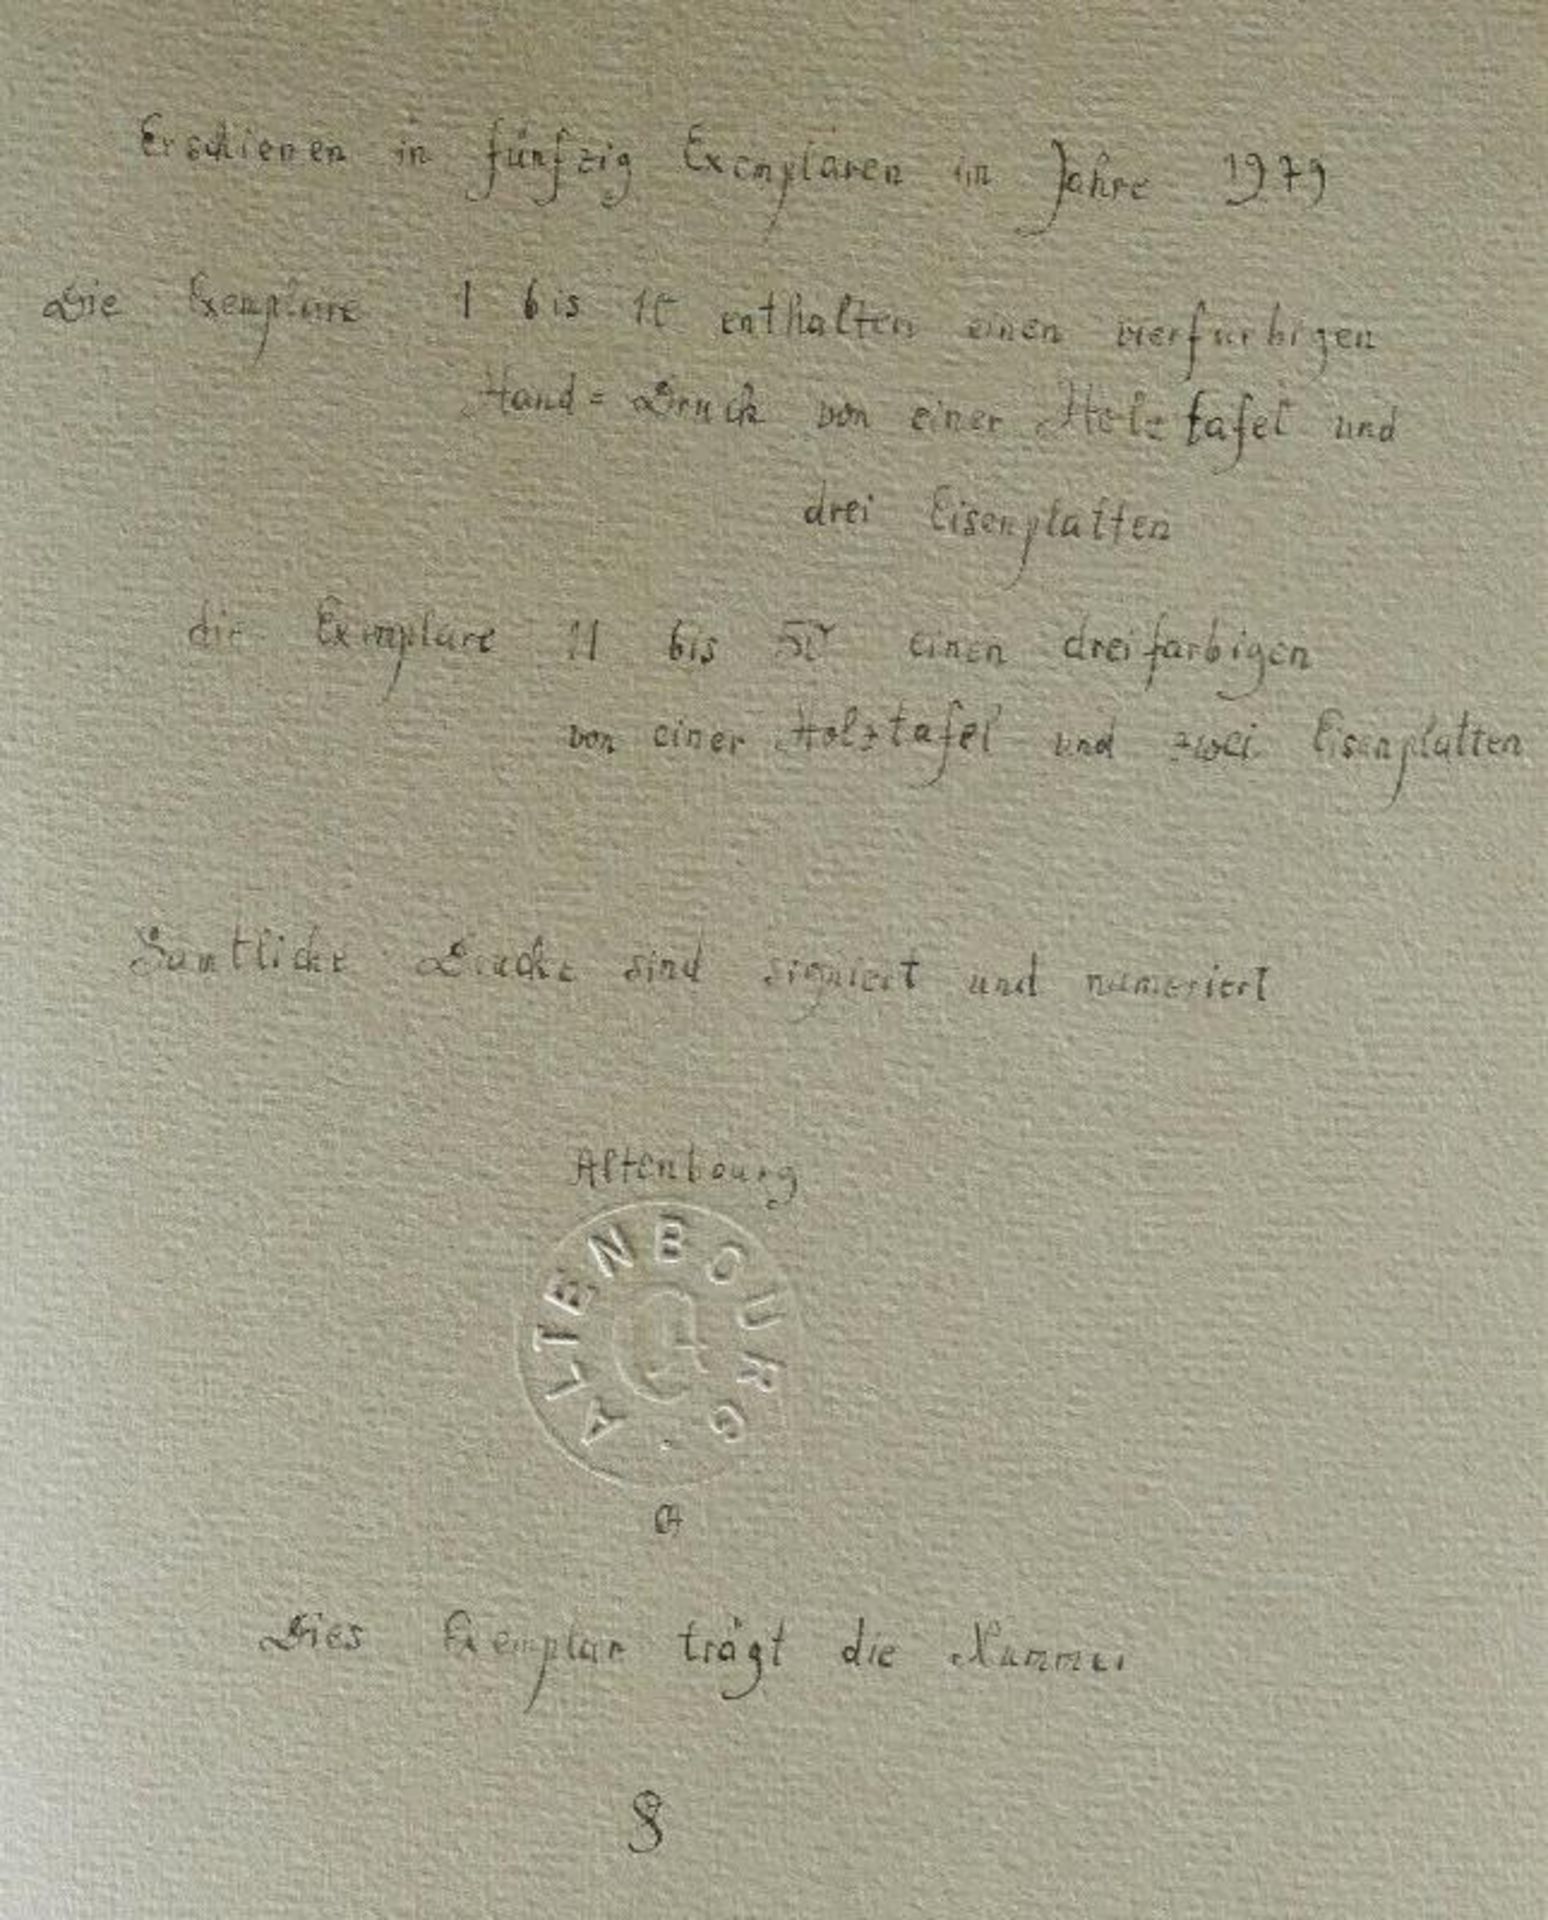 Erschienen in fünfzig Exemplaren im Jahre 1979
Die Exemplare 1 bis 10 enthalten einen vierfarbigen
Hand= Druck von einer Holztafel und
drei Eisenplatten
die Exemplare 11 bis 50 einen dreifarbigen
von einer Holztafel und zwei Eisenplatten
Sämtliche Drucke sind signiert und numeriert
Altenbourg
ALTENBOURG
Dies Exemplar trägt die Nummer